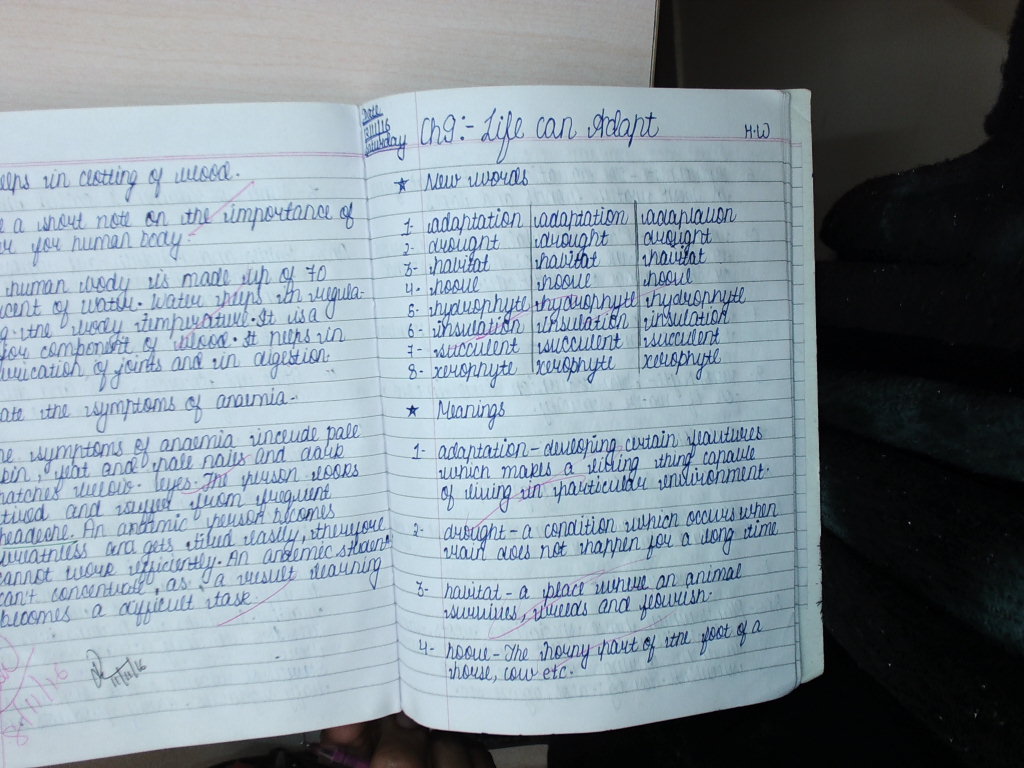 elps in clotting of blood.
e a short note on the importance of
er for human body.
human body is made up of 70
cent of water. Water helps in regula-
g the body temperature. It is a
jor component of blood. It helps in
lubrication of joints and in digestion.
ate the symptoms of anaemia.
he symptoms of anaemia include pale
skin, flat and pale nails and dark
patches below eyes. The person looks
tired and suffer from frequent
headache. An anaemic person becomes
breathless and gets tired easily, therefore
cannot work efficiently. An anaemic student
can't concentrate, as a result learning
becomes a difficult task.
11/11/16
Date
12/11/16
Saturday
Ch9:- Life can Adapt
H.W
★ New words
1- adaptation adaptation adaptation
2- drought drought drought
3- habitat habitat habitat
4- hoove hoove hoove
5- hydrophyte hydrophyte hydrophyte
6- insulation insulation insulation
7- succulent succulent succulent
8- xerophyte xerophyte xerophyte
★ Meanings
1- adaptation - developing certain feautures
which makes a living thing capable
of living in particular environment.
2- drought - a condition which occurs when
rain does not happen for a long time
3- habitat - a place where an animal
survives, breeds and flourish.
4- hoove - The horny part of the foot of a
horse, cow etc.